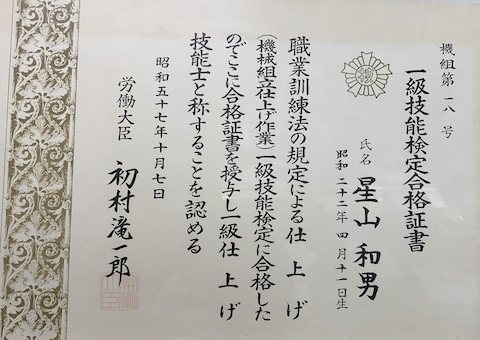 機組第一八号
一級技能検定合格証書
氏名 星山和男
昭和二十二年四月十一日生
職業訓練法の規定による仕上げ
(機械組立仕上げ作業)一級技能検定に合格した
のでここに合格証書を授与し一級仕上げ
技能士と称することを認める
昭和五十七年十月七日
労働大臣 初村滝一郎